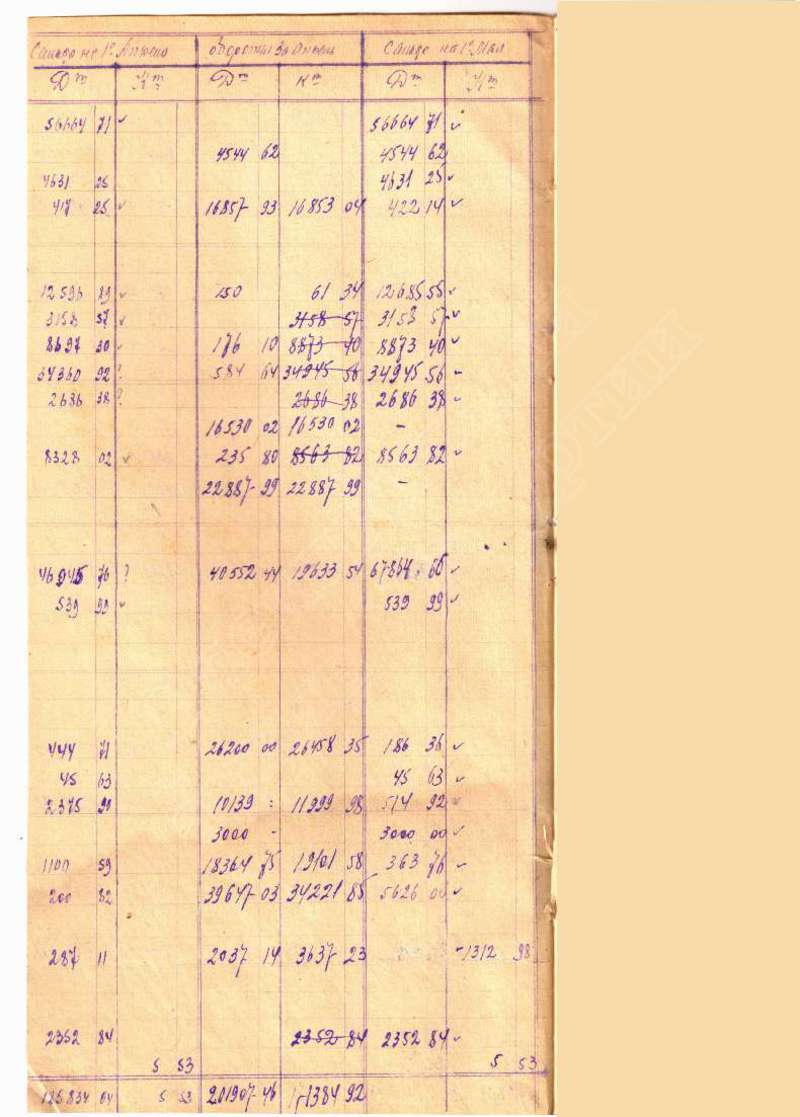 Сальдо на 1е Апреля Обороты за Апрель Сальдо на 1е Мая
Дт Кт Дт Кт Дт Кт
56664 71 56664 71
4544 62 4544 62
4631 25 4631 25
417 25 16857 93 16853 04 422 14
12596 89 150 61 34 12685 55
3158 57 3158 57 3158 57
8697 30 176 10 8873 40 8873 40
34360 92 ? 584 64 34945 56 34945 56
2686 38 ? 2686 38 2686 38
16530 02 16530 02 -
8328 02 235 80 8563 82 8563 82
22887 99 22887 99 -
46945 76 ? 40552 44 19633 54 67864 66
539 99 539 99
444 71 26200 00 26458 35 186 36
45 63 45 63
2375 90 10139 : 11999 98 514 92
3000 - 3000 00
1100 59 18364 75 19101 58 363 76
200 82 39647 03 34221 85 5626 00
287 11 2037 14 3637 23 1312 98
2352 84 2352 84 2352 84
5 53 5 53
64 5 53 201907 46 1384 92